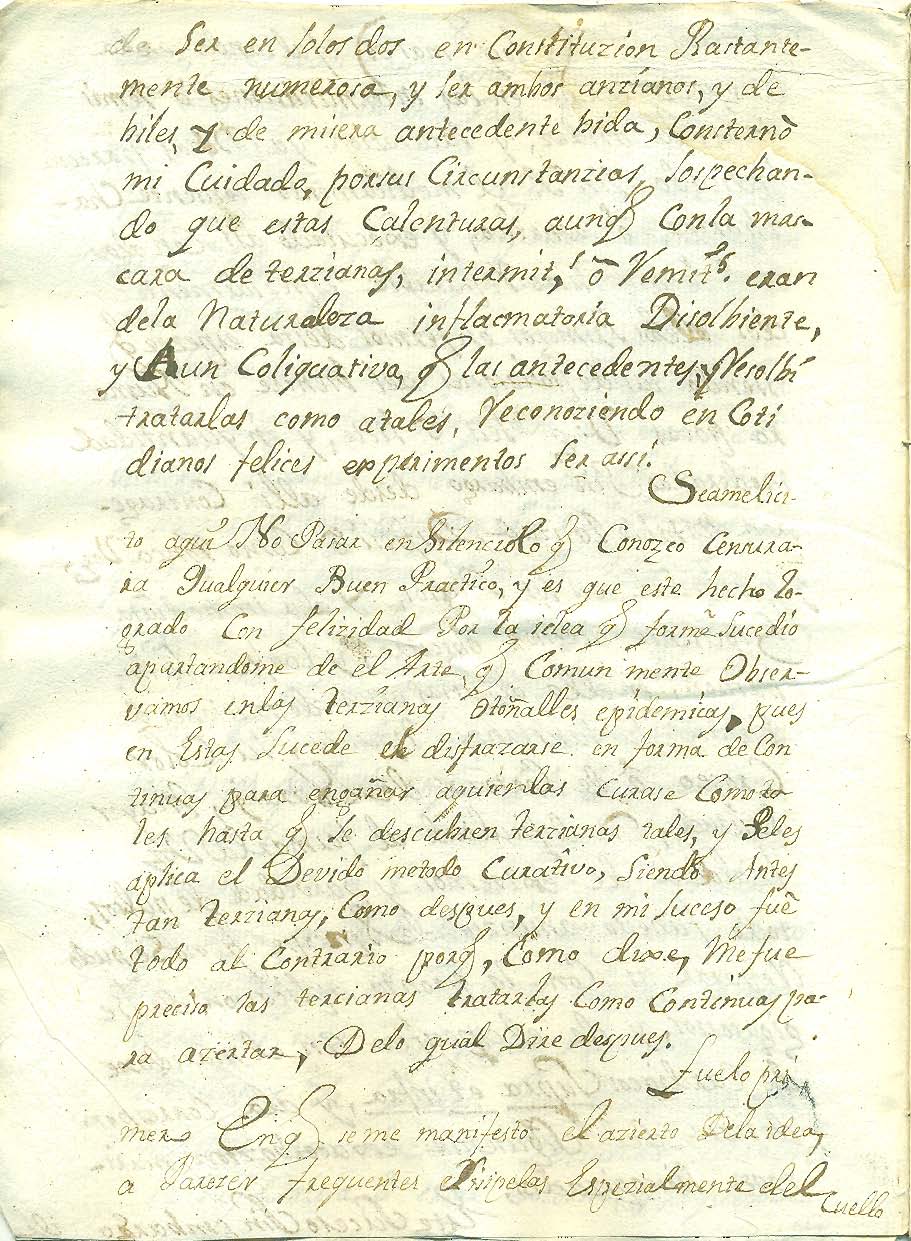 de ser en solos dos en Constituzion Bastante-
mente numerosa, y ser ambos anzianos, y de
biles, y de misera antecedente bida, Consternò
mi Cuidado, porsus Circunstanzias, sospechan-
do que estas Calenturas, aunq Conla mas-
cara de terzianas, intermit,s ò Remit.s eran
dela Naturaleza inflacmatoria Disolbiente,
y Aun Coliquativa, q las antecedentes, y Resolbi
tratarlas como atales, Reconoziendo en Coti
dianos felices experimentos ser assi.
Seamelici-
to aqui No Pasar en Silencio lo q Conozco Censura-
ra Qualquier Buen Practico, y es que este hecho lo-
grado Con felizidad Por la idea q formè Sucediò
apartandome de el Arte, q Comun mente Obser-
vamos enlas terzianas Otoñalles epidemicas, pues
en Estas Sucede el disfrazarse en forma de Con
tinuas para engañar aquienlas Curase Como ta
les hasta q se descubren terzianas tales, y Seles
aplica el Devido metodo Curativo, siendo Antes
tan terzianas, Como despues, y en mi suceso fuè
todo al Contrario porq, Como dixe, Mefue
preciso las tercianas tratarlas Como Continuas pa-
ra azertar, Delo qual Dire despues.
fuelo pri
mero Enq seme manifesto el azierto Dela idea,
a Parezer frequentes erisipelas Espezialmente del
Cuello